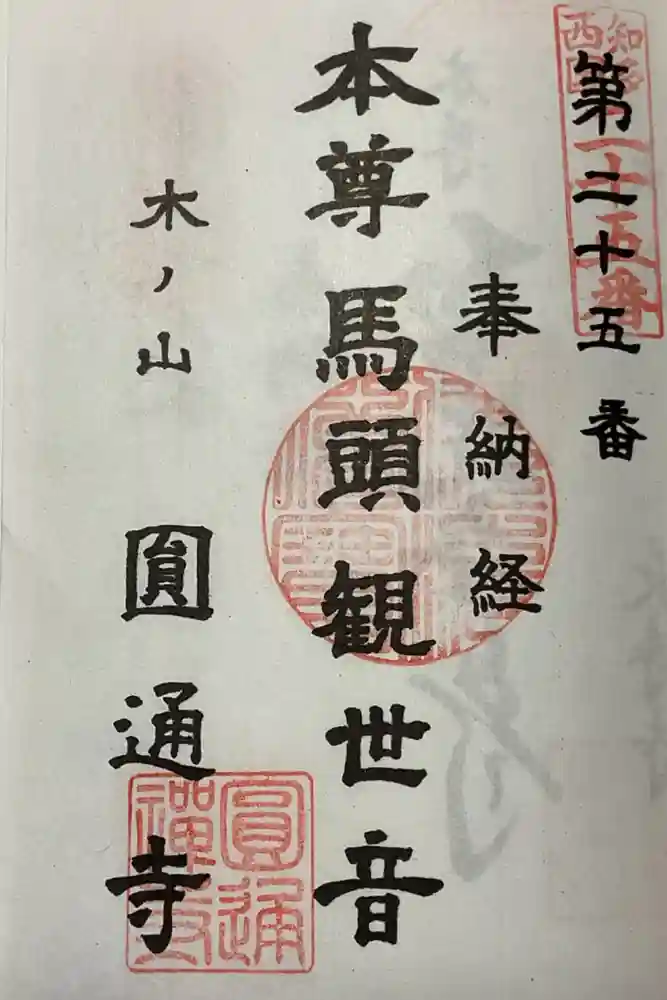 第二十五番
知多
西国
二十五番
奉納経
本尊馬頭観世音
木ノ山 圓通寺
圓通
禅寺